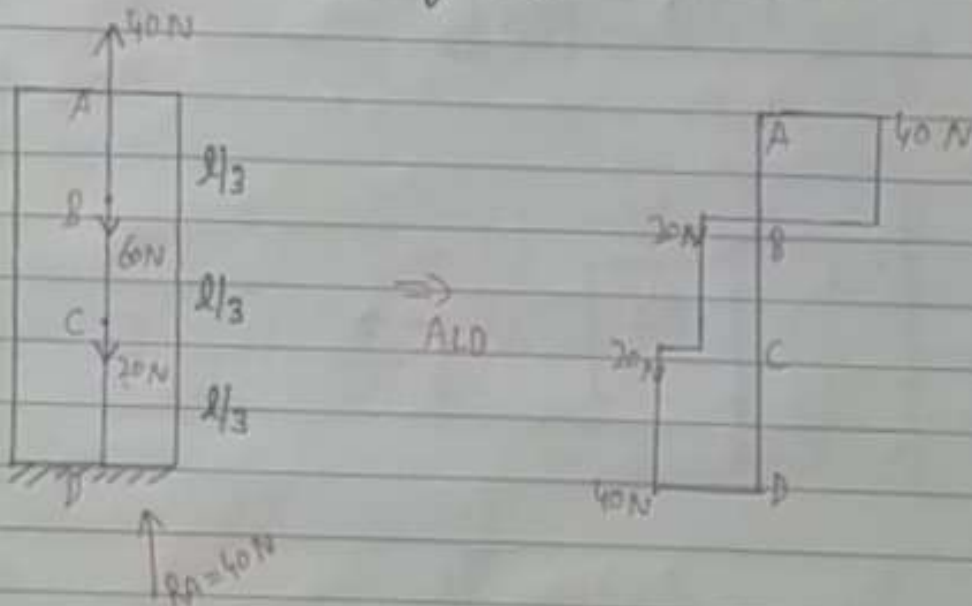 40N
A
l/3
B
60N
l/3
C
20N
l/3
D
RA=40N
⇒
ALD
A
40N
20N
B
20N
C
40N
D